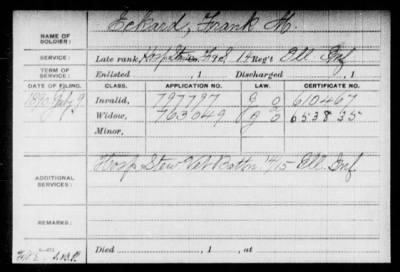 NAME OF SOLDIER: Eckard, Frank M.
SERVICE: Late rank, Hosp Stew F&S 14 Reg't Ill Inf
TERM OF SERVICE: Enlisted , 1 Discharged , 1
DATE OF FILING. CLASS. APPLICATION NO. CERTIFICATE NO.
1890 July 9 Invalid, 797797 610467
Widow, 763049 653835
Minor,
ADDITIONAL SERVICES: Hosp Stew Vet Battn 14/15 Ill Inf
REMARKS:
Died , 1 , at